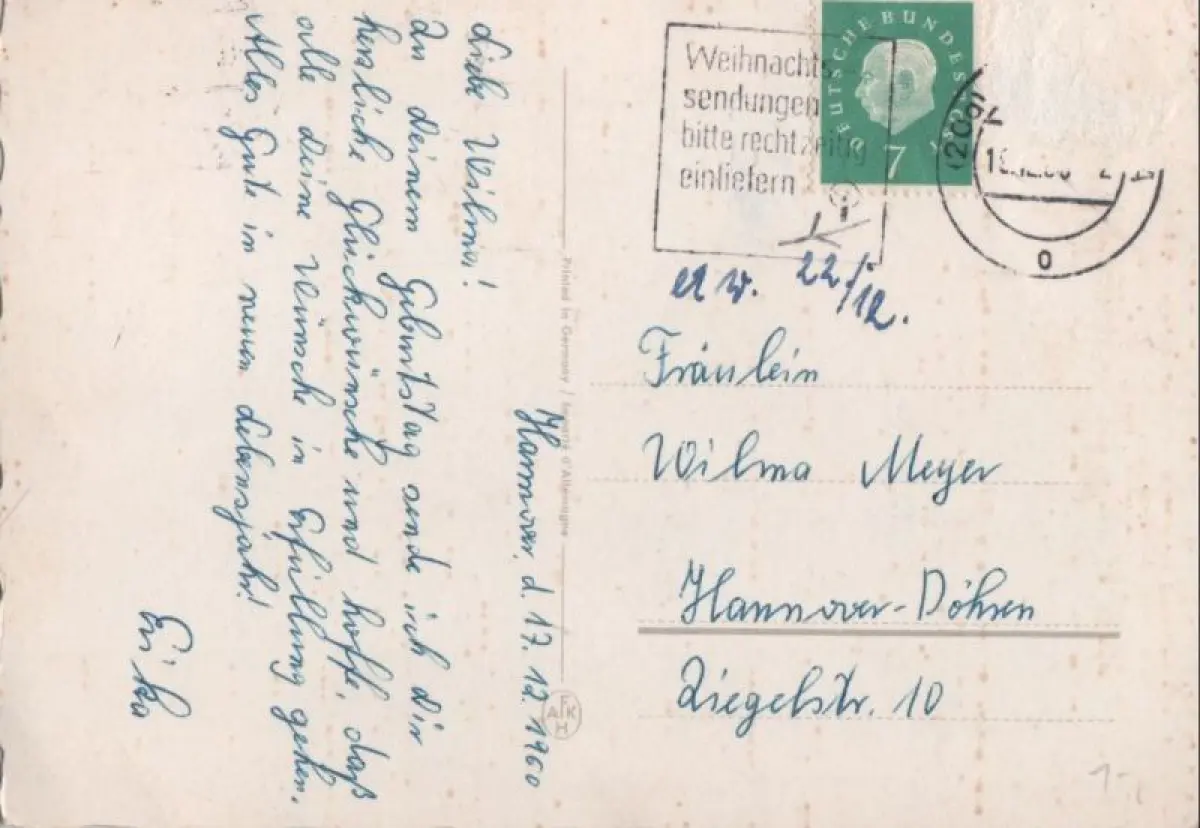 Hannover, d. 17. 12. 1960
Liebe Wilma!
Zu Deinem Geburtstag sende ich Dir
herzliche Glückwünsche und hoffe, daß
alle Deine Wünsche in Erfüllung gehen.
Alles Gute im neuen Lebensjahr!
Erika
Printed in Germany / Importé d'Allemagne
AFKH
Weihnachts-
sendungen
bitte rechtzeitig
einliefern
DEUTSCHE BUNDESPOST
7
22/12.
Fräulein
Wilma Meyer
Hannover-Döhren
Ziegelstr. 10
1-